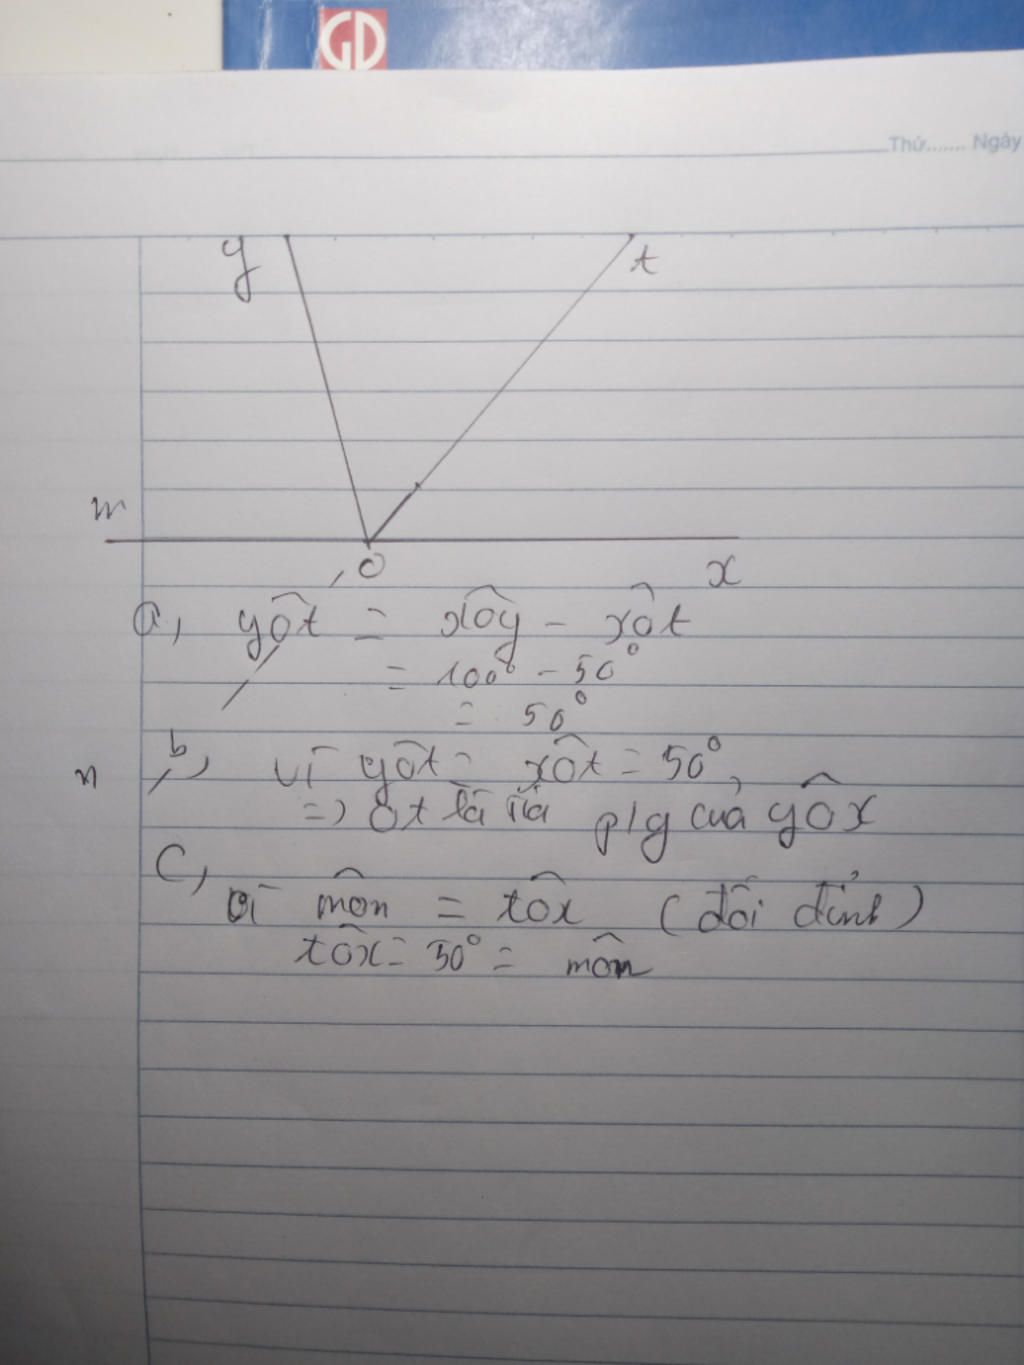 GD
Thứ....... Ngày
y
t
m
O
x
a, yôt = xôy - xôt
= 100° - 50°
= 50°
n
b, Vì yôt = xôt = 50°,
=) Ot là tia p/g của yôx
C,
Vì môn = tôx (đối đỉnh)
tôx = 50° = môn